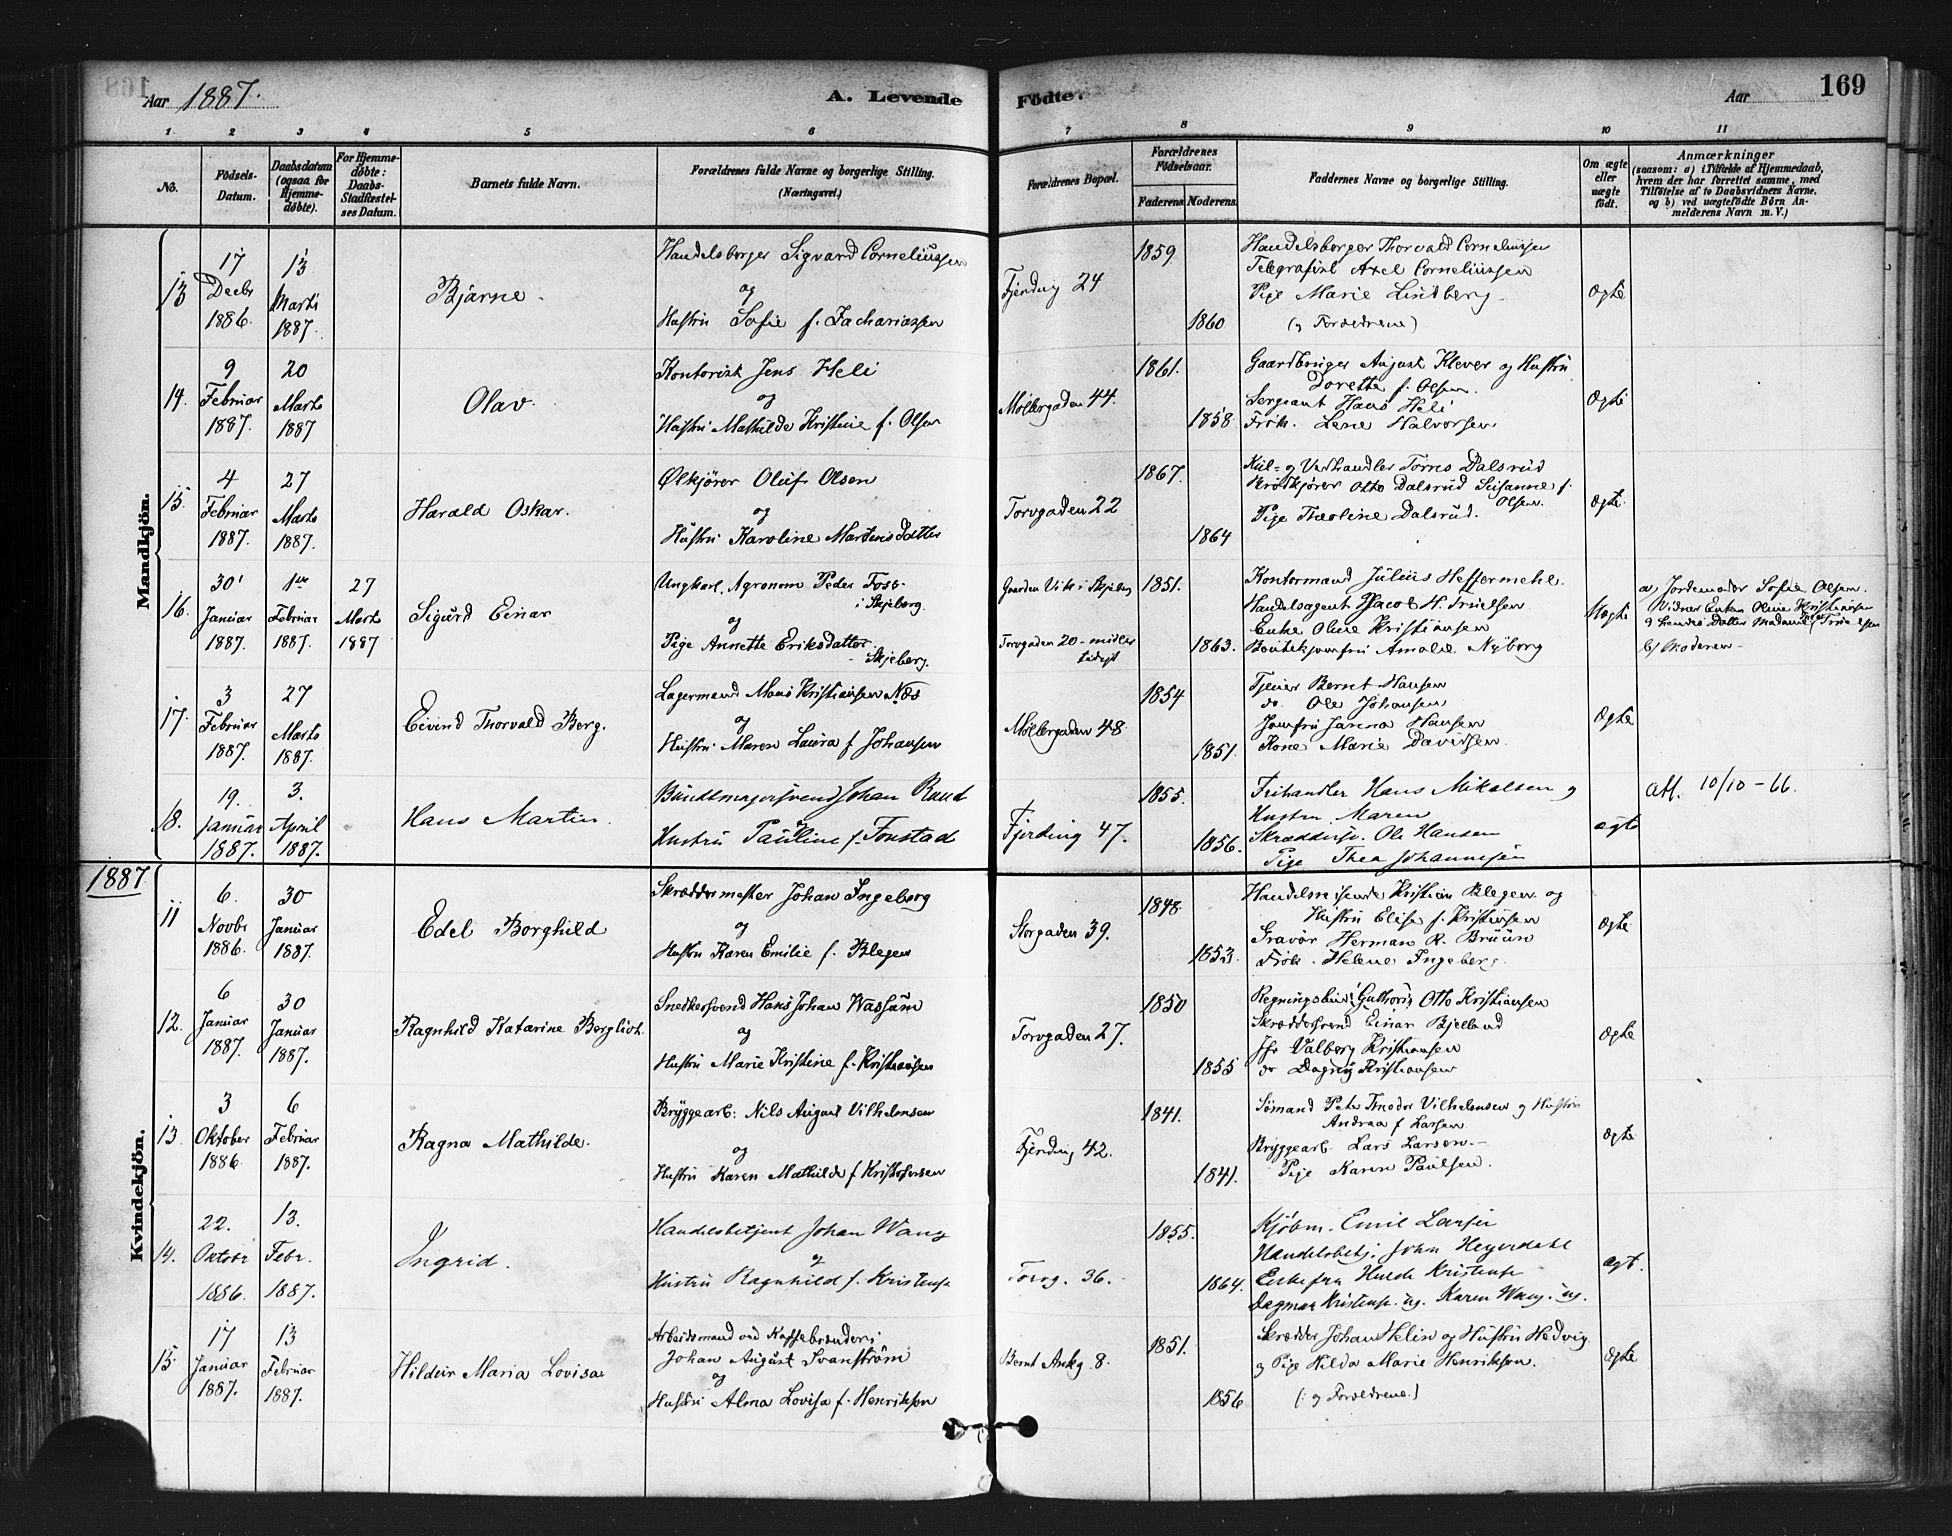 Aar 1887.
A. Levende Fødte.
Aar
169
1 2 3 4 5 6 7 8 9 10 11
No.
Fødsels-Datum.
Daabsdatum (ogsaa for Hjemme-døbte).
For Hjemme-døbte: Daabs-Stadfæstel-ses Datum.
Barnets fulde Navn.
Forældrenes fulde Navne og borgerlige Stilling. (Næringsvei.)
Forældrenes Bopæl.
Forældrenes Fødselsaar.
Faderens. Moderens.
Faddernes Navne og borgerlige Stilling.
Om ægte eller uægte født.
Anmærkninger
(saasom: a) i Tilfælde af Hjemmedaab,
hvem der har forrettet samme, med
Tilføielse af to Daabsvidners Navne,
og b) ved uægtefødte Börn An-
melderens Navn m. V.)
Mandkjön.
13
17 Decbr 1886.
13 Marts 1887.
Bjarne.
Handelsborger Sigvard Corneliussen
og
Hustru Sofie f. Zachariassen
Fjerding 24
1859
1860
Handelsborger Thorvald Corneliussen
Telegrafist Axel Corneliussen
Pige Marie Lindberg.
(og Forældrene)
Ægte
14.
9 Februar 1887.
20 Marts 1887
Olav.
Kontorist Jens Heli
og
Hustru Mathilde Kristine f. Olsen
Møllergaden 44.
1861.
1858
Gaardbruger August Klever og Hustru
Dorette f. Olsen.
Sergeant Hans Heli
Frøk. Lene Halvorsen.
Ægte
15.
4 Februar 1887.
27 Marts 1887.
Harald Oskar.
Ølkjører Oluf Olsen
og
Hustru Karoline Martinsdatter
Torvgaden 22
1867.
1864
Kul- og Vedhandler Torris Dalsrud
Brødkjører Otto Dalsrud Susanne f.
Olsen.
Pige Theoline Dalsrud.
Ægte.
16.
30' Januar 1887.
1ste Februar 1887.
27 Marts 1887
Sigurd Einar
Ungkarl, Agronom Peder Foss-
i Skjeberg.
og
Pige Annette Eriksdatter
Skjeberg.
Gaarden Vik i Skjeberg
Torvgaden 20 - midler
tidigt
1851.
1863.
Kontormand Julius Heffermehl.
Handelsagent Jacob H. Truelsen
Enke Oline Kristiansen
Boutikjomfru Amalie Nyborg
Uægte
a) Jordemoder Sofie Olsen.
Vidner Enken Oline Kristiansen
og hendes Datter Madame Truelsen
b) Moderen -
17.
3 Februar 1887.
27 Marts 1887.
Eivind Thorvald Berg.
Lagermand Mons Kristiansen Næs
og
Hustru Maren Laura f Johansen
Møllergaden 48
1854
1851.
Tjener Bernt Hansen
do. Ole Johansen
Jomfru Janna Hansen
Kone Marie Davidsen.
Ægte
18.
19. Januar 1887.
3. April 1887.
Hans Martin.
Buntmagersvend Johan Ruud
og
Hustru Pauline f. Fonstad
Fjerding 47.
1855.
1856.
Frihandler Hans Mikalsen og
Hustru Maren
Skræddersv. Ole Hansen
Pige Thea Johannesen
ægte
Att. 10/10 - 66.
1887
Kvindekjön.
11
6. Novbr 1886.
30 Januar 1887.
Edel Borghild
Skræddermester Johan Ingeberg
og
Hustru Karen Emilie f. Blegen
Storgaden 39.
1848
1853.
Handelsreisende Kristian Blegen og
Hustru Elise f. Kristiansen
Gravør Herman R. Bruun
Frøk. Helene Ingeberg.
Ægte
12.
6 Januar 1887.
30 Januar 1887.
Ragnhild Katarine Bergliot.
Snedkersvend Hans Johan Wassum
og
Hustru Marie Kristine f. Kristiansen
Torvgaden 27.
1850
1855
Otto Kristiansen
Skræddersvend Einar Bjelland
Jfr Valborg Kristiansen
do Dagny Kristiansen
Ægte
13.
3 Oktober 1886.
6 Februar 1887.
Ragna Mathilde.
Bryggearb: Nils August Vilhelmsen
og
Hustru Karen Mathilde f Kristofersen
Fjerding 42.
1841.
1841.
Sømand Peter Theodor Vilhelmsen og Hustru
Andrea f Larsen
Bryggearb. Lars Larsen.-
Pige Karen Paulsen.
Ægte
14.
22. Oktobr 1886.
13. Febr. 1887.
Ingrid.
Handelsbetjent Johan Wang
og
Hustru Ragnhild f. Kristense
Torvg. 36.
1855.
1864.
Kjøbm. Emil Larsen
Handelsbetj. John Heyerdahl
Enkefru Hulda Kristense
Dagmar Kristense ug. Karen Wang. ug.
ægt.
15.
17 Januar 1887.
13 Februar 1887.
Hildur Maria Lovisa
Arbeidsmand ved Kaffebrænderi
Johan August Svanstrøm
og
Hustru Alma Lovisa f. Henrikson
Bernt Ankg 8.
1851.
1856
Skrædder Johan Helin og Hustru Hedvig
og Pige Hilda Marie Henrikson.
(: og Forældrene.)
Ægte